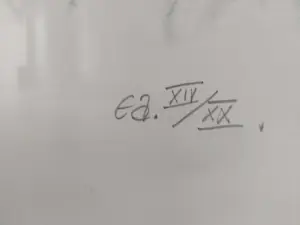 Ea. XIV/XX.